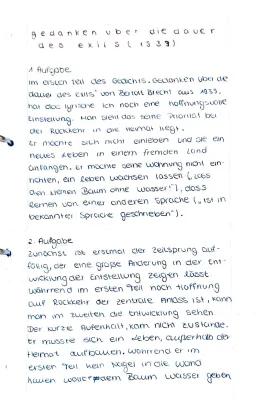 gedanken über die dauer
des exils (1939)
1. Aufgabe
Im ersten Teil des Gedichts, Gedanken über die
dauer des exils" von Bertolt Brecht aus 1939,
hat das lyrische Ich noch eine hoffnungsvolle
Einstellung. Man sieht das seine Priorität bei
der Rückkehr in die Heimat liegt.
Er möchte sich nicht einleben und sie ein
neues Leben in einem fremden Land
anfangen. Er möchte seine Wohnung nicht ein-
richten, ein Leben wachsen lassen („Lass
den kleinen Baum ohne Wasser!"), dass
lernen von einer anderen Sprache („ist in
bekannter Sprache geschrieben").
2. Aufgabe
Zunächst ist erstmal der Zeitsprung auf-
fällig, der eine große Änderung in der Ent-
wicklung der Einstellung zeigen lässt
Während im ersten Teil noch Hoffnung
auf Rückkehr der zentrale Anlass ist, kann
man im zweiten die Entwicklung sehen
Der kurze Aufenhalt, kam nicht zustande.
Er musste sich ein Leben, außerhalb der
Heimat aufbauen. Während er im
ersten Teil kein Nagel in die Wand
hauen wollte dem Baum Wasser geben